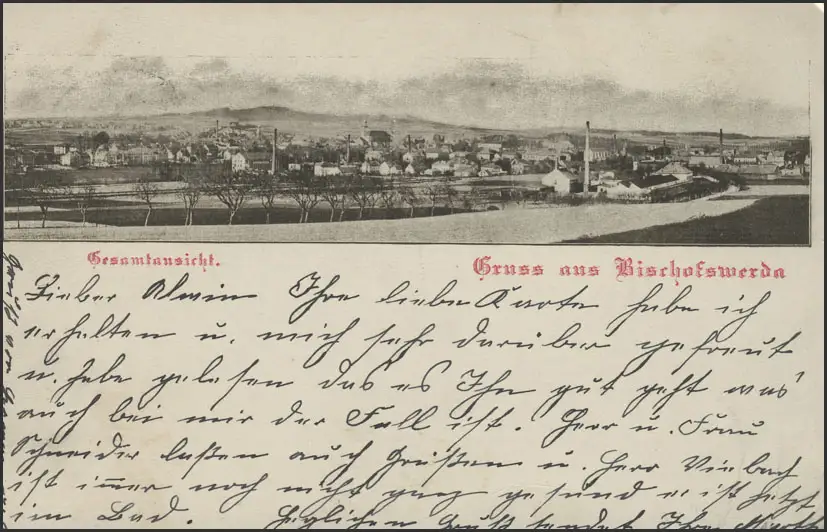 Gesamtansicht.
Gruss aus Bischofswerda
Lieber Alwin Ihre liebe Karte habe ich
erhalten u. mich sehr darüber gefreut
u. habe gelesen das es Ihn gut geht was
auch bei mir der Fall ist. Herr u. Frau
Schneider laßen auch Grüßen u. Herr Viebach
ist im̄er noch nicht ganz gesund er ist jetzt
im Bad. Herzlichen Gruß sendet Ihnen